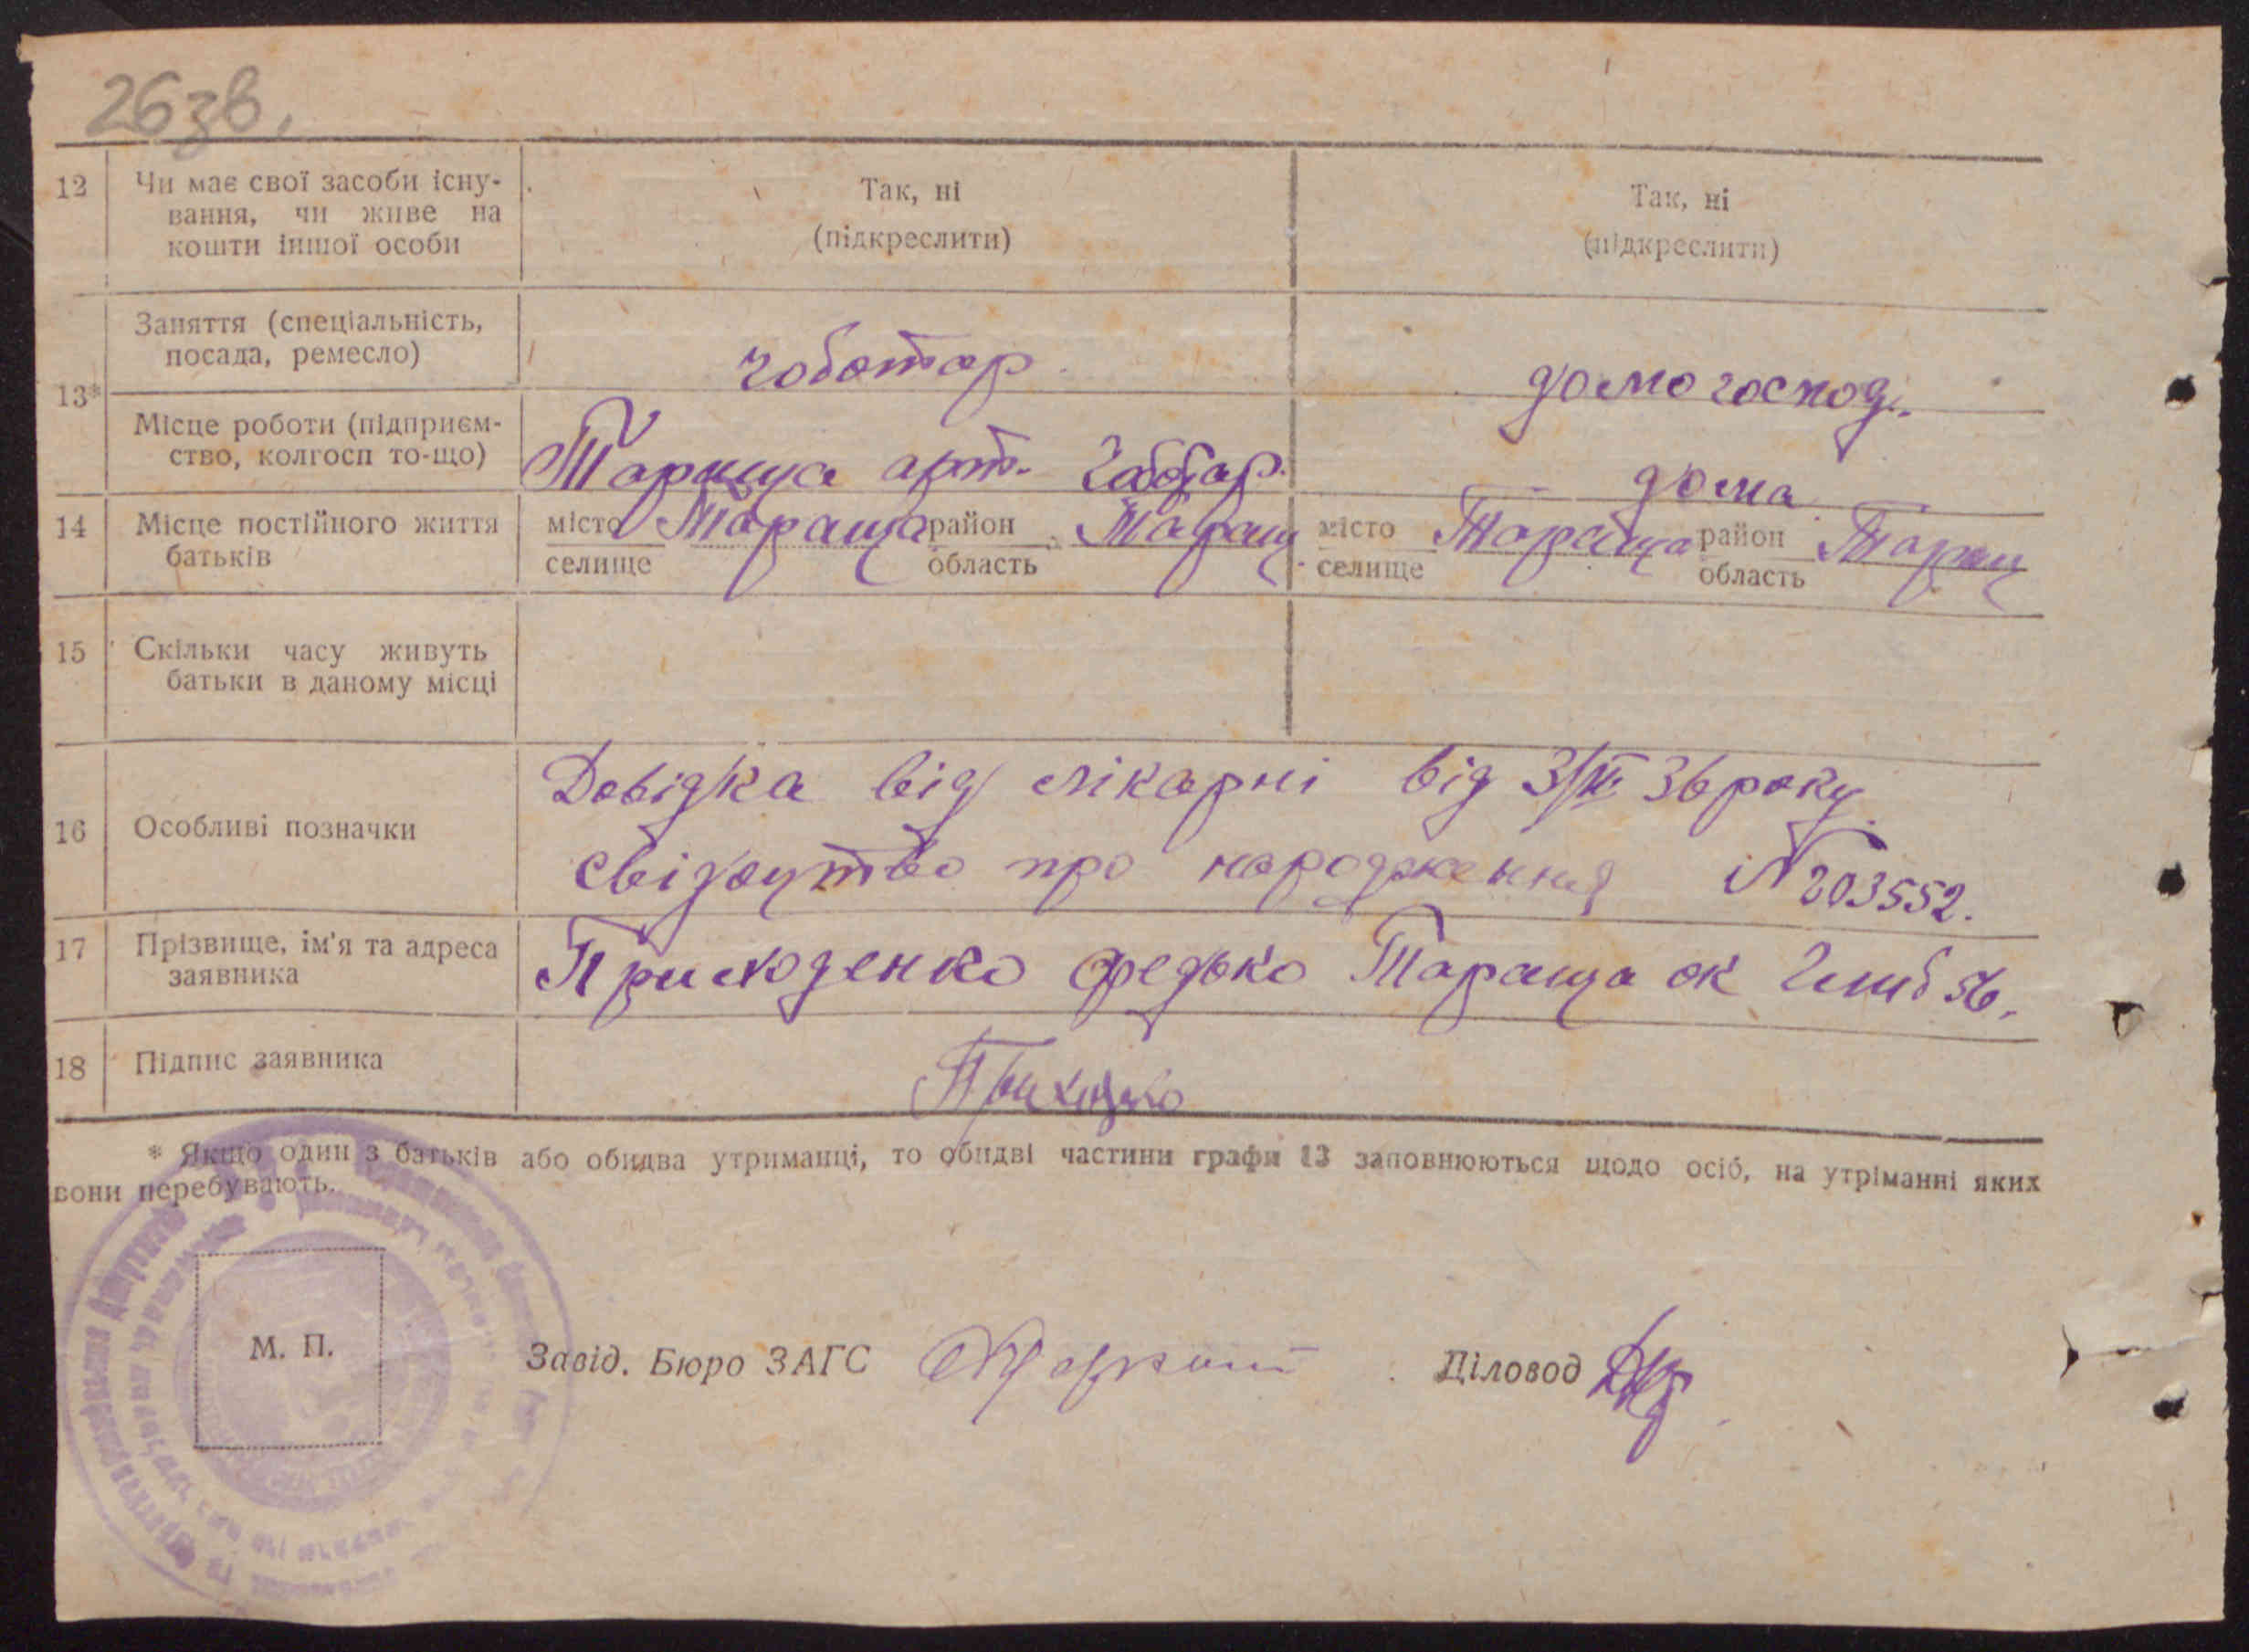 26 зв.
12 Чи має свої засоби існу-
вання, чи живе на
кошти іншої особи
Так, ні
(підкреслити)
Так, ні
(підкреслити)
13*
Заняття (спеціальність,
посада, ремесло)
чоботар
домогоспод.
Місце роботи (підприєм-
ство, колгосп то-що)
Тараща арт. Чоботар.
дома
14 Місце постійного життя
батьків
місто Тараща район Таращ.
селище область
місто Тараща район Таращ
селище область
15 Скільки часу живуть
батьки в даному місці
16 Особливі позначки
Довідка від лікарні від 36 року
свідоцтво про народження № 203552.
17 Прізвище, ім'я та адреса
заявника
Приходенко Федько Тараща ок
18 Підпис заявника
* Якщо один з батьків або обидва утриманці, то обидві частини графи 13 заповнюються щодо осіб, на утріманні яких
вони перебувають.
М. П.
Завід. Бюро ЗАГС
Діловод